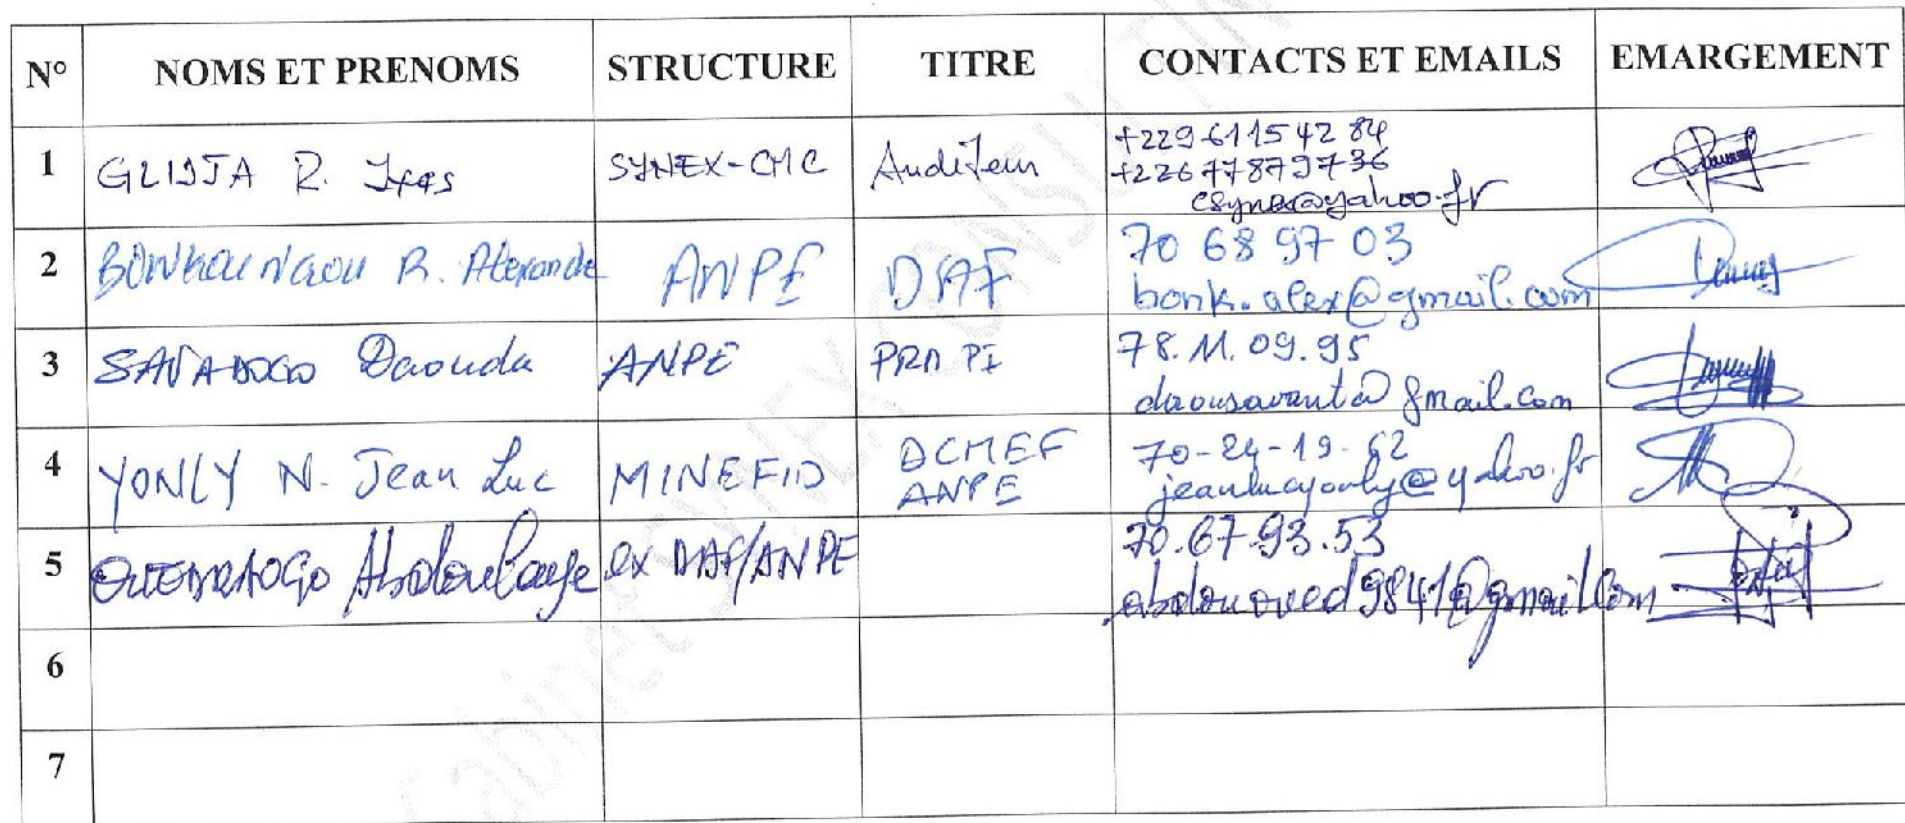 N° NOMS ET PRENOMS STRUCTURE TITRE CONTACTS ET EMAILS EMARGEMENT
1 R. SYNEX-CMC Auditeur +229 61154284
+226 77879736
csynex@yahoo.fr
2 BONKOUNGOU R. Alexandre ANPE DAF 70 68 97 03
bonk.alex@gmail.com
3 SAVADOGO Daouda ANPE PRM PI 78.11.09.95
daousavant@gmail.com
4 YONLY N. Jean Luc MINEFID DCMEF
ANPE 70-24-19-62
jeanlucyonly@yahoo.fr
5 OUEDRAOGO Abdoulaye ex DAF/ANPE 70.67.93.53
abdououed9841@gmail.com
6
7
Cabinet SYNEX CONSULTING